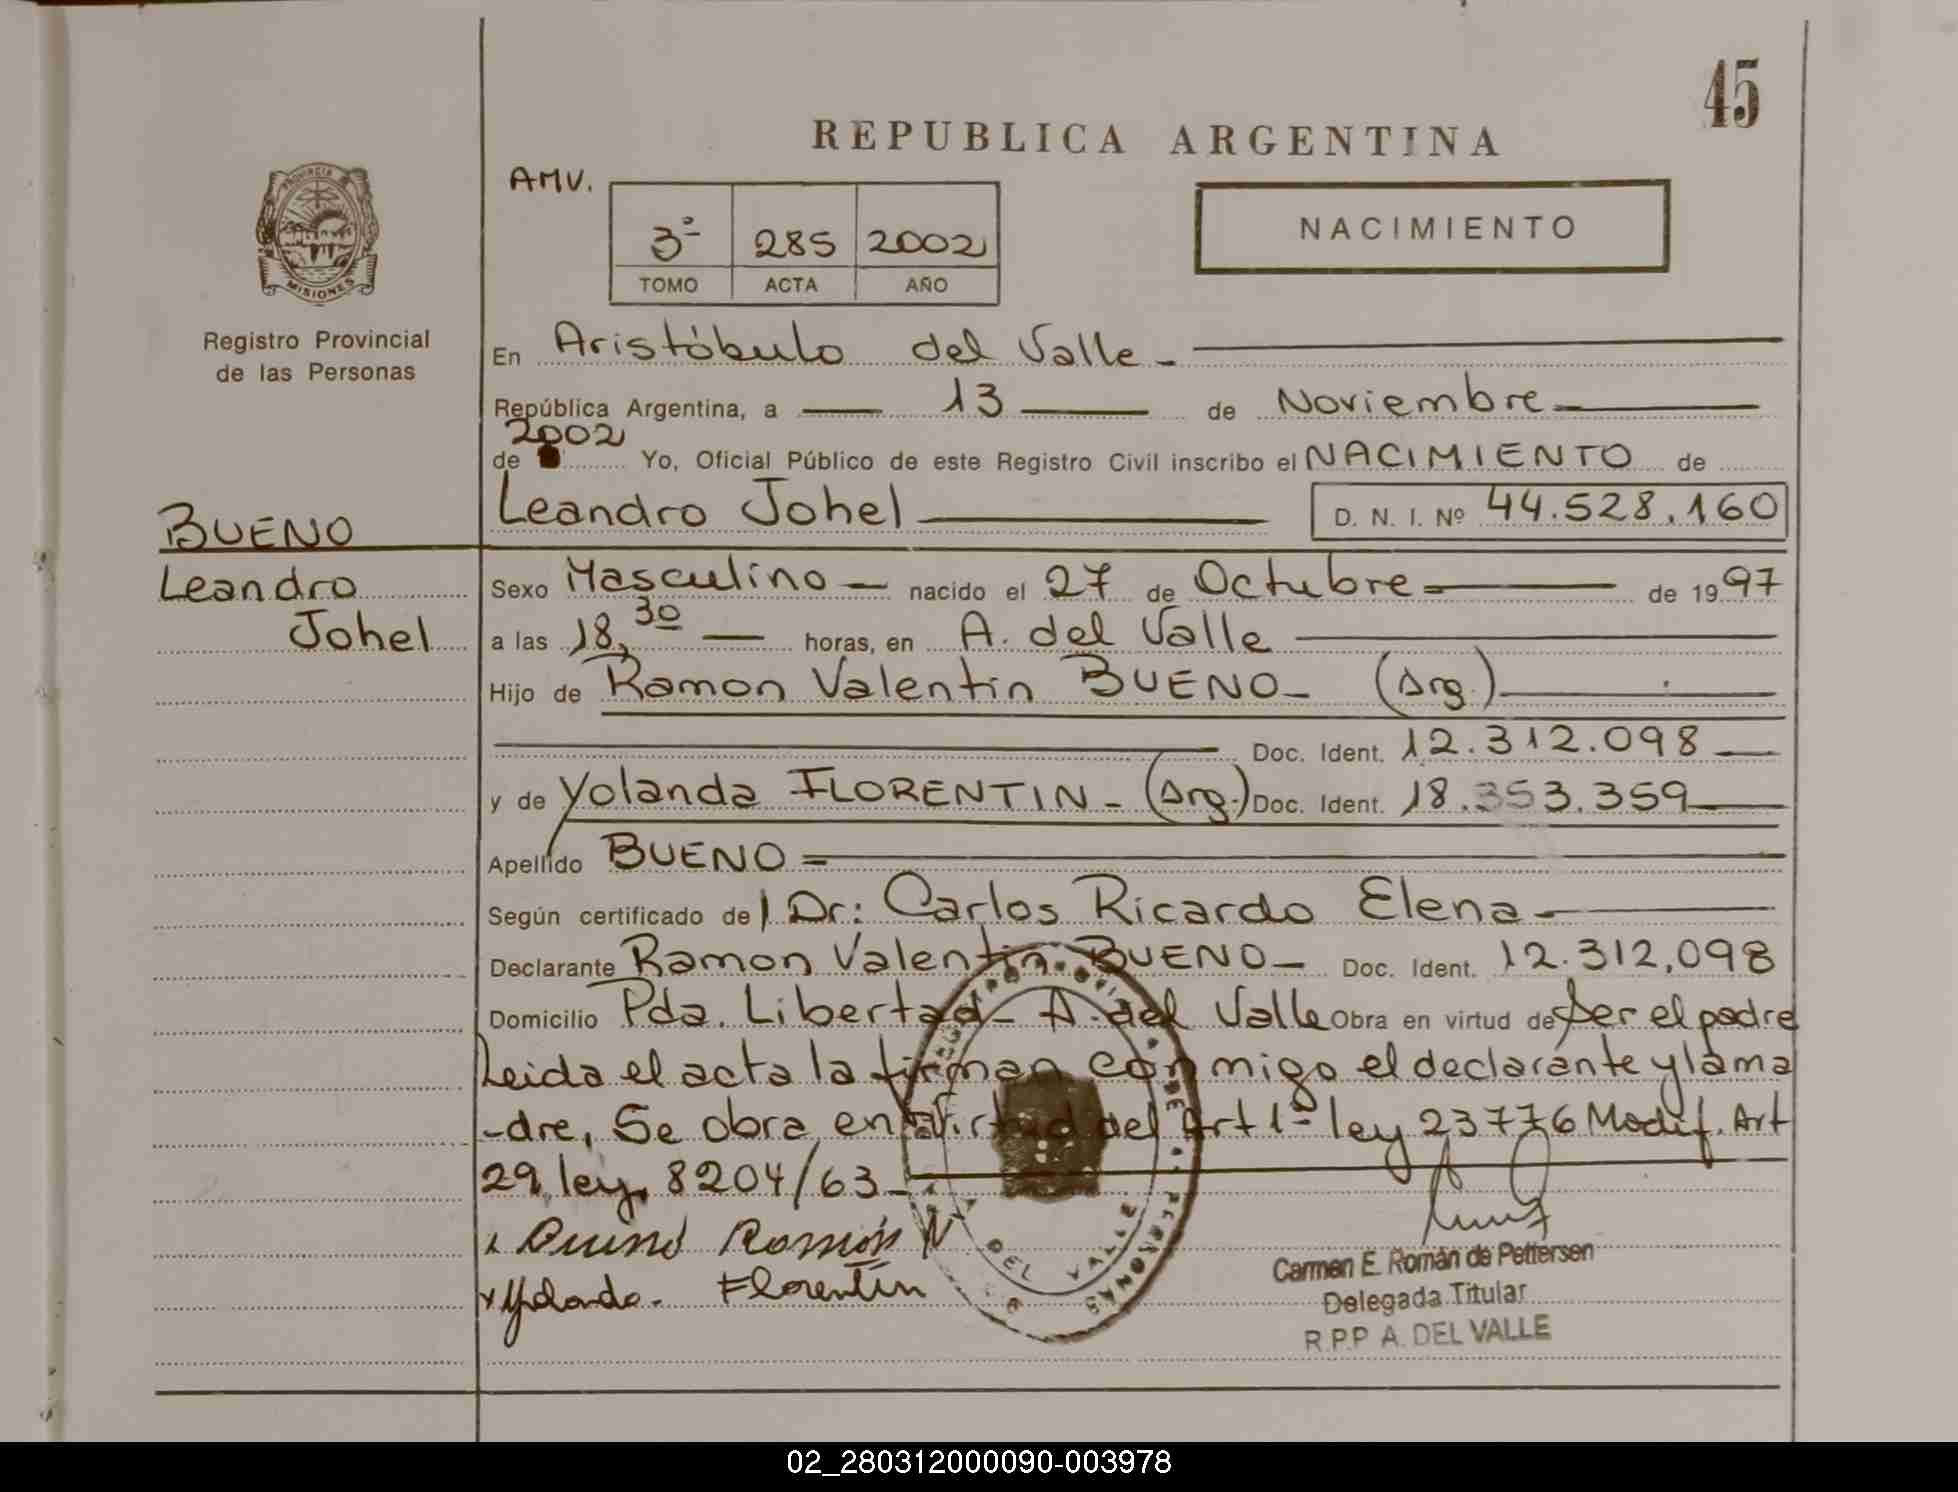 45
REPUBLICA ARGENTINA
AMV.
3º 285 2002
TOMO ACTA AÑO
NACIMIENTO
PROVINCIA
MISIONES
Registro Provincial
de las Personas
En Aristóbulo del Valle -
República Argentina, a 13 de Noviembre
2002
de Yo, Oficial Público de este Registro Civil inscribo el NACIMIENTO de
Leandro Johel D. N. I. Nº 44.528.160
BUENO
Leandro
Johel
Sexo Masculino nacido el 27 de Octubre de 1997
a las 18,30 horas, en A. del Valle
Hijo de Ramon Valentin BUENO - (Arg.)
Doc. Ident. 12.312.098
y de Yolanda FLORENTIN - (Arg.) Doc. Ident. 18.353.359
Apellido BUENO =
Según certificado de l Dr: Carlos Ricardo Elena -
Declarante Ramon Valentin BUENO - Doc. Ident. 12.312,098
Domicilio Pda. Libertad - A. del Valle Obra en virtud de Ser el padre
Leida el acta la firman conmigo el declarante y la ma
-dre, Se obra en virtud del Art 1º ley 23776 Modif. Art
29 ley, 8204/63 -
x Bueno Ramón V
x Yolanda. Florentín
DEL VALLE
PERSONAS
Carmen E. Román de Pettersen
Delegada Titular
R.P.P A. DEL VALLE
02_280312000090-003978